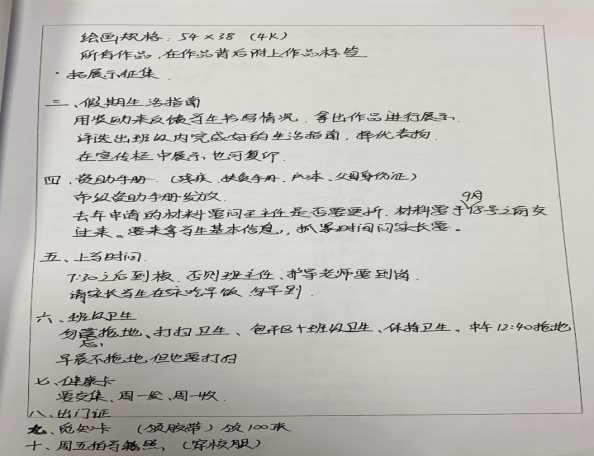 绘画规格：54×38 (4K)
所有作品，在作品背后附上作品标签
·拓展示征集
三、假期生活指南
用奖励来反馈学生书写情况．拿出作品进行展示．
评选出班级内完成好的生活指南，择优表扬．
在宣传栏中展示也可复印．
四、资助手册．(残疾、扶贫手册、户口本、父母身份证)
市级资助手册发放．
9月
去年申请的材料要问王主任是否要更新．材料要于8号之前交
过来。要来拿学生基本信息，抓紧时间问家长要。
五、上学时间．
7:30之后到校．否则班主任、护导老师要到岗．
请家长学生在家吃早饭．勿早到．
六、班级卫生
勿忘拖地、打扫卫生、包干区+班级卫生、保持卫生、中午12:40拖地
早晨不拖地但也要打扫
七、健康卡
要交集、周一发、周一收．
八、出门证
九、觅知卡 (领胶带) 领100张
十、周五拍学籍照．(穿校服)